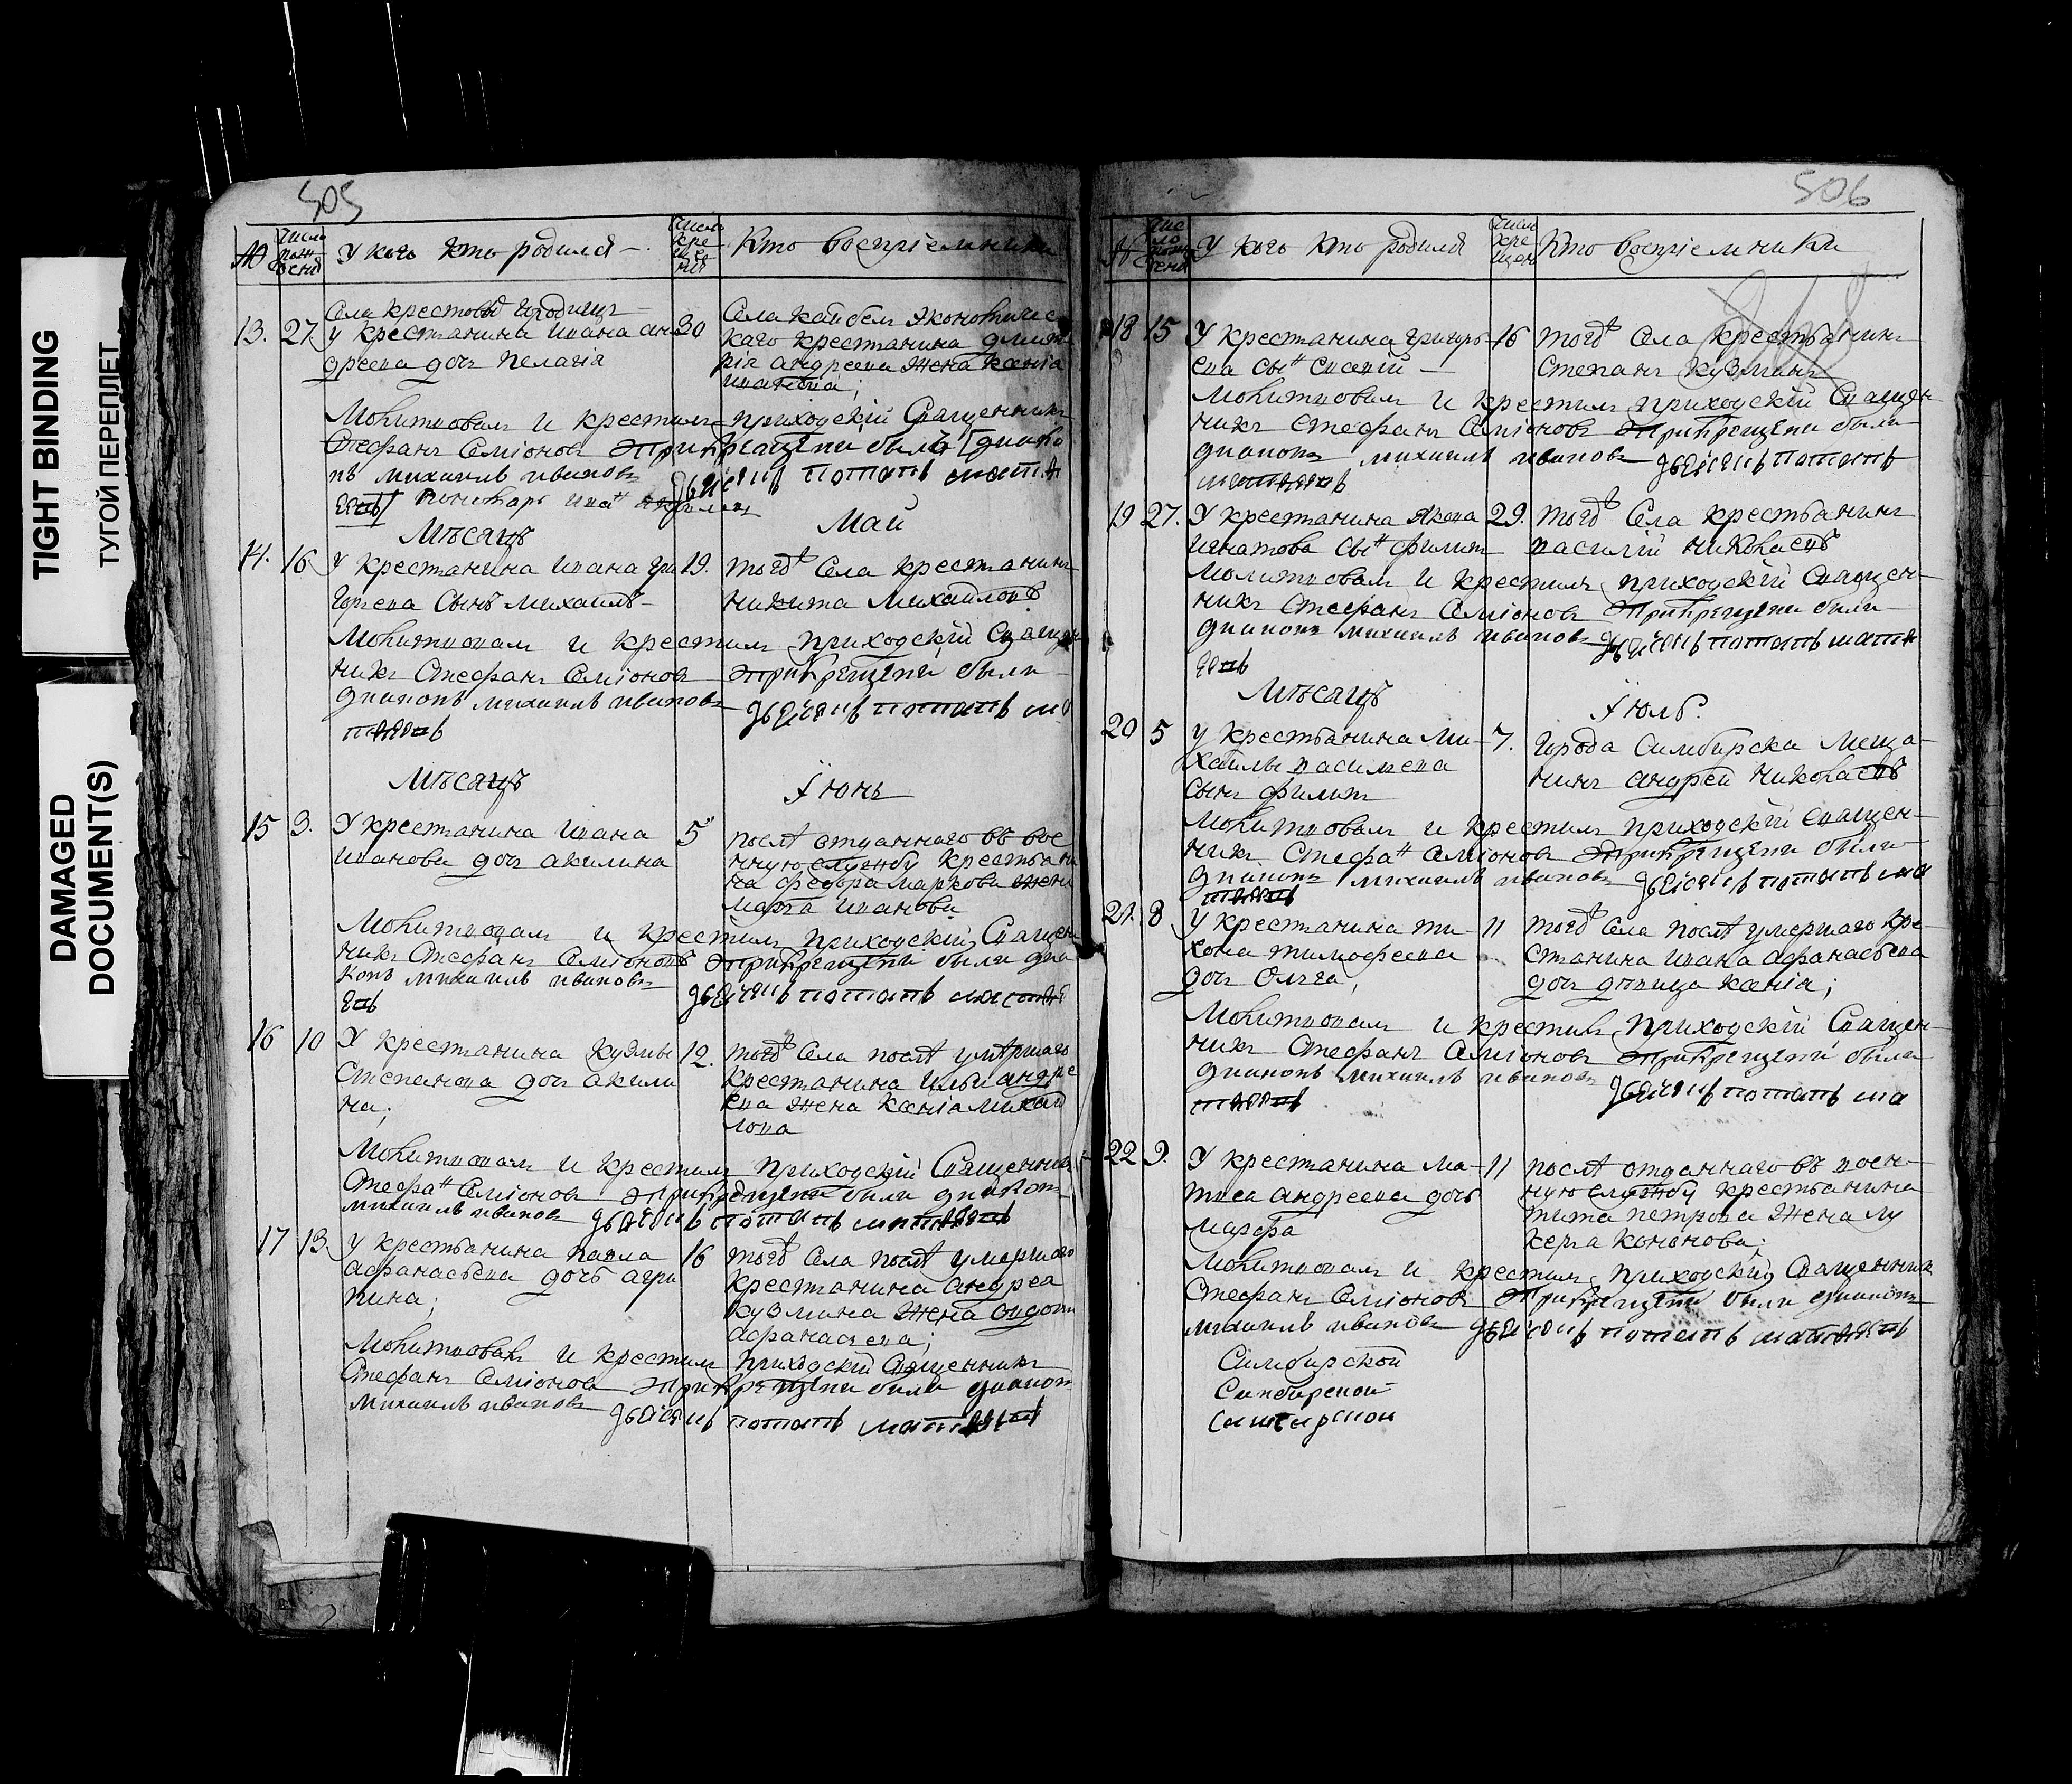 TIGHT BINDING
ТУГОЙ ПЕРЕПЛЕТ
DAMAGED
DOCUMENT(S)
505
№
число рож-дени
У кого кто родился
число кре-ще-нія
Кто воспріемники
Села крестовы городищь
13. 27. у крестьянина ивана ан
дреева дочь пелагія
30
Села кайбел экономичес
каго крестьянина дмит
рія андреева жена ксенія
иванова;
Молитвовал и крестил приходскій Священникъ
Стефанъ Семіоновъ при крещеніи были діако
нъ михаилъ ивановъ дьячекъ потапъ матв
еевъ понамарь иванъ
Мѣсяцъ Май
14. 16. У крестьянина ивана гри
горьева сынъ михаилъ
19. того села крестьянинъ
никита михайловъ
Молитвовал и крестил приходскій Священ
никъ Стефанъ Семіоновъ при крещеніи были
діаконъ михаилъ ивановъ дьячекъ потапъ ма
твеевъ
Мѣсяцъ Іюнь
15 3. У крестьянина ивана
иванова дочь акилина
5 послѣ отданнаго въ вое
нную службу крестьяни
на федора маркова жена
марѳа иванова
Молитвовал и крестил приходскій Священ
никъ Стефанъ Семіоновъ при крещеніи были діа
конъ михаилъ ивановъ
дьячекъ потапъ матве
евъ
16 10 У крестьянина кузмы
Степанова дочь акили
на;
12. того села послѣ умершаго
крестьянина ильи андре
ева жена ксенія михай
лова
Молитвовал и крестил приходскій Священникъ
Стефанъ Семіоновъ при крещеніи были діаконъ
михаилъ ивановъ дьячекъ потапъ матвеевъ
17 13. у крестьянина павла
афанасьева дочь агри
пина;
16 того села послѣ умершаго
крестьянина андрея
кузмина жена
афанасьева;
Молитвовалъ и крестил приходскій Священникъ
Стефанъ Семіоновъ при крещеніи были діаконъ
михаилъ ивановъ дьячекъ потапъ матвеевъ
506
№
У кого кто родился
число кре-щен
Кто воспріемники
18 15 У крестьянина григорь
ева сынъ
16 того села крестьянинъ
Степанъ кузминъ
Молитвовал и крестил приходскій Священ
никъ Стефанъ Семіоновъ при крещеніи были
діаконъ михаилъ ивановъ дьячекъ потапъ
матвеевъ
19 27. У крестьянина якова
игнатова сынъ филип
29. того села крестьянинъ
василій николаевъ
Молитвовал и крестилъ приходскій Священ
никъ Стефанъ Семіоновъ при крещеніи были
діаконъ михаилъ ивановъ дьячекъ потапъ матв
еевъ
Мѣсяцъ Іюль.
20 5 у крестьянина ми
хайлы васильева
сынъ филип
7. города Симбирска меща
нинъ андрей николаевъ
Молитвовал и крестил приходскій священ
никъ Стефанъ Семіоновъ при крещеніи были
діаконъ михаилъ ивановъ дьячекъ потапъ ма
твеевъ
21. 8 у крестьянина ти
хона тимофеева
дочь Олга;
11 того села послѣ умершаго кре
стьянина ивана афанасьева
дочь дѣвица ксенія;
Молитвовал и крестилъ приходскій Священ
никъ Стефанъ Семіоновъ при крещеніи были
діаконъ михаилъ ивановъ
дьячекъ потапъ ма
твеевъ
22 9. У крестьянина ма
твея андреева дочь
марфа
11 послѣ отданнаго въ воен
ную службу крестьянина
тита петрова жена лу
керья кононова;
Молитвовал и крестил приходскій Священникъ
Стефанъ Семіоновъ при крещеніи были діаконъ
михаилъ ивановъ дьячекъ потапъ матвеевъ
Симбирской
Синбирской